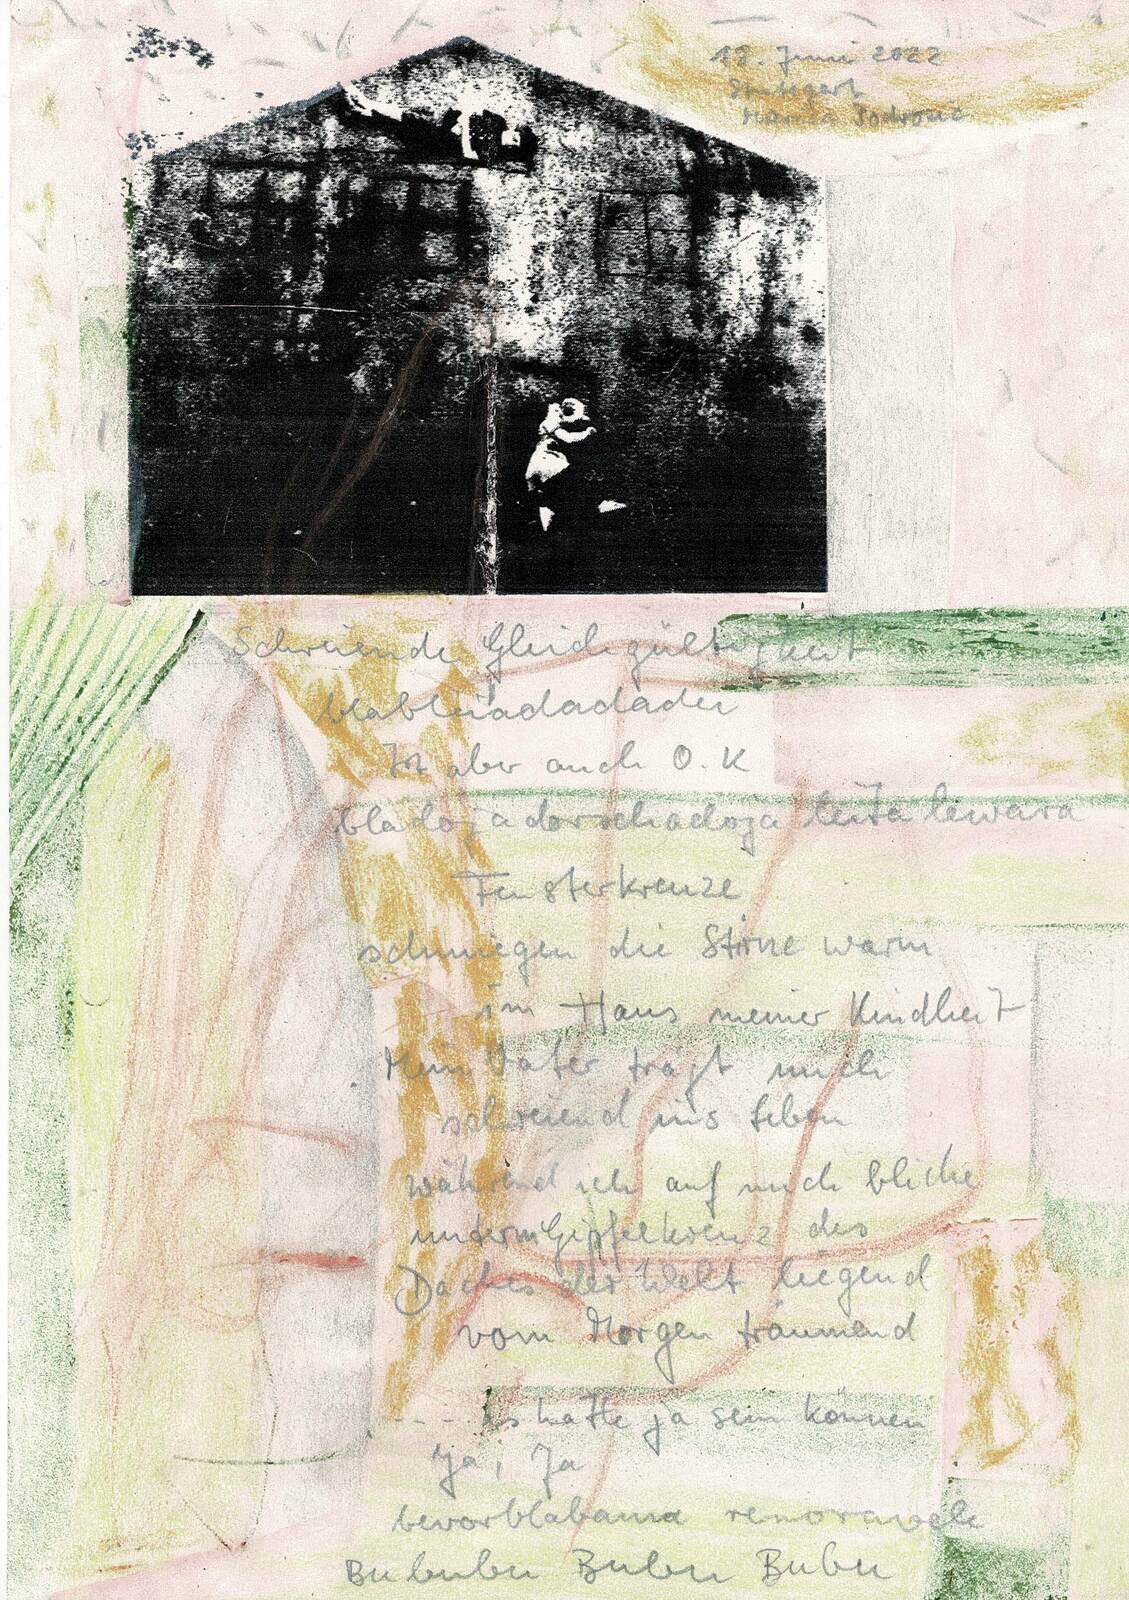 18. Juni 2022
Stuttgart
Schreiende Gleichgültigkeit
blableiadadader
Ist aber auch O.K
bladojadorschadoja leija lewara
Fensterkreuze
schmiegen die Stirne warm
im Haus meiner Kindheit
Mein Vater trägt mich
schreiend ins Leben
während ich auf mich blicke
unterm Gipfelkreuz des
Daches der Welt liegend
vom Morgen träumend
--- es hätte ja sein können
Ja, Ja
bevorblabama
Bububu Bubu Bubu